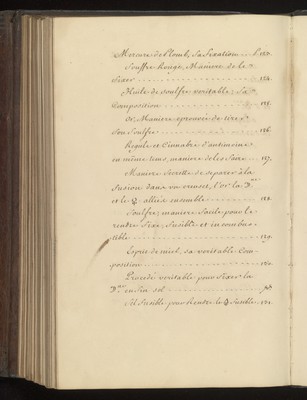 Mercure de Plomb, Sa fixation . . p. 153.
Souffre Rouge, Maniere de le
fixer . . . . . . . . . . 154.
Huile de Soulfre veritable, Sa
Composition . . . . . . . . 155.
Or, Maniere eprouvée de tirer
Son Soulfre . . . . . . . . 156.
Regule et Cinnabre d'antimoine
en même tems, maniere de les faire . . . 157.
Maniere Secrette de Separer à la
fusion dans un creuset, l'or la
et le alliéz ensemble . . . . . . 158.
Soulfre; maniere facile pour le
rendre fixe, fusible et incombus-
tible . . . . . . . . . . 159.
Esprit de miel, Sa veritable Com-
position . . . . . . . . . 160.
Procedé veritable pour fixer la
en fin sol . . . . . . . .
Sel fusible pour Rendre le fusible.